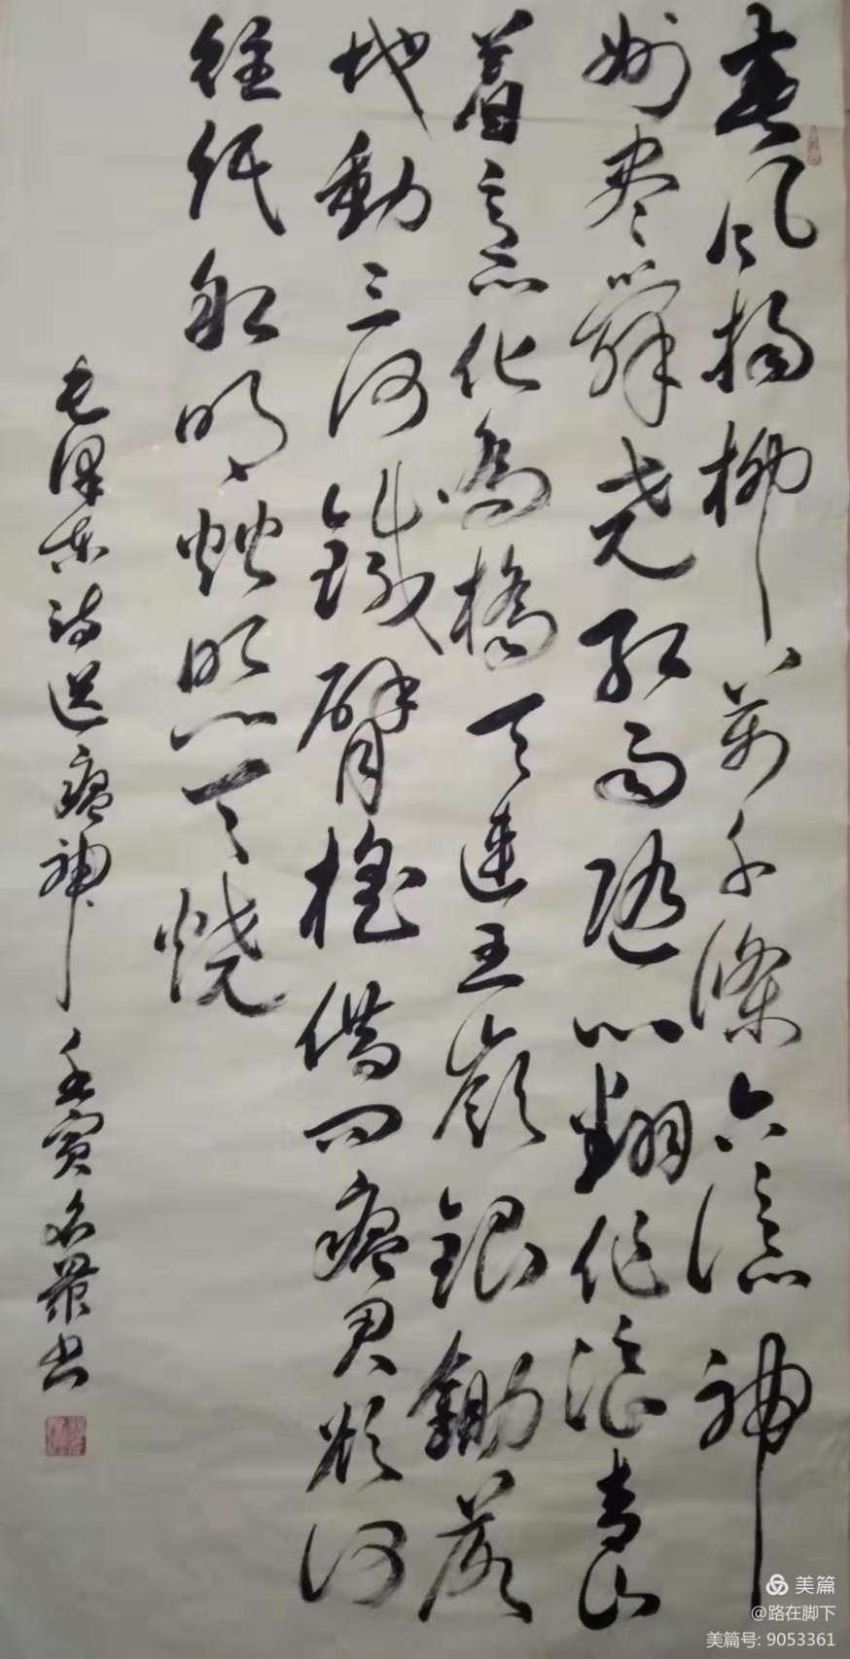 春风杨柳萬千條六億神
州尽舜尧红雨随心翻作浪青山
着意化為橋天連五嶺銀鋤落
地動三河鐵臂摇借问瘟君欲何
往纸船明烛照天烧
毛泽东诗送瘟神 壬寅 书
美篇
@路在脚下
美篇号: 9053361